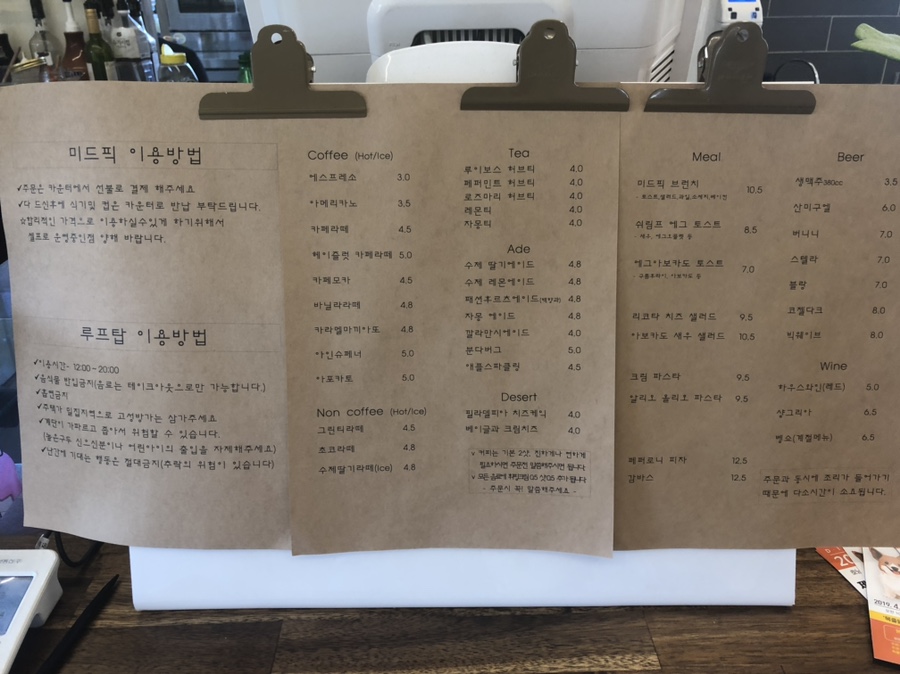 미드픽 이용방법
✓주문은 카운터에서 선불로 결제 해주세요
✓다 드신후에 식기및 컵은 카운터로 반납 부탁드립니다.
☆합리적인 가격으로 이용하실수있게 하기위해서
셀프로 운영중인점 양해 바랍니다.
루프탑 이용방법
✓이용시간- 12:00~20:00
✓음식물 반입금지(음료는 테이크아웃으로만 가능합니다.)
✓흡연금지
✓주택가 밀집지역으로 고성방가는 삼가주세요
✓계단이 가파르고 좁아서 위험할 수 있습니다.
(높은구두 신으신분이나 어린아이의 출입을 자제해주세요)
✓난간에 기대는 행동은 절대금지(추락의 위험이 있습니다)
Coffee (Hot/Ice)
에스프레소 3.0
아메리카노 3.5
카페라떼 4.5
헤이즐럿 카페라떼 5.0
카페모카 4.5
바닐라라떼 4.8
카라멜마끼아또 4.8
아인슈페너 5.0
아포카토 5.0
Non coffee (Hot/Ice)
그린티라떼 4.5
초코라떼 4.8
수제딸기라떼(ice) 4.8
Tea
루이보스 허브티 4.0
페퍼민트 허브티 4.0
로즈마리 허브티 4.0
레몬티 4.0
자몽티 4.0
Ade
수제 딸기에이드 4.8
수제 레몬에이드 4.8
패션후르츠에이드(백향과) 4.8
자몽 에이드 4.8
깔라만시에이드 4.0
분다버그 5.0
애플스파클링 4.5
Desert
필라델피아 치즈케익 4.0
베이글과 크림치즈 4.0
v 커피는 기본 2샷, 진하게나 연하게
필요하시면 주문전 말씀해주시면 됩니다
v 모든 음료에 휘핑크림 0.5 샷 0.5 추가 됩니다
- 주문시 꼭! 말씀해주세요 -
Meal
미드픽 브런치 10.5
- 토스트,샐러드,과일,소세지,베이컨
쉬림프 에그 토스트 8.5
- 새우, 에그스크램블 등
에그아보카도 토스트 7.0
리코타 치즈 샐러드 9.5
아보카도 새우 샐러드 10.5
크림 파스타 9.5
알리오 올리오 파스타 9.5
페퍼로니 피자 12.5
감바스 12.5
Beer
생맥주380cc 3.5
산미구엘 6.0
버니니 7.0
스텔라 7.0
블랑 7.0
코젤다크 8.0
빅웨이브 8.0
Wine
하우스와인(레드) 5.0
샹그리아 6.5
뱅쇼(계절메뉴) 6.5
주문과 동시에 조리가 들어가기
때문에 다소시간이 소요됩니다.
2019. 4.